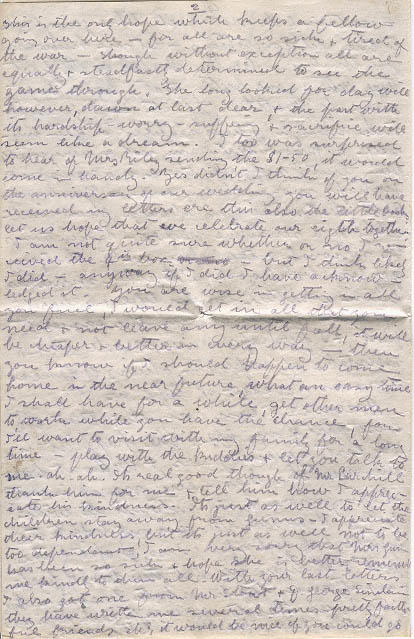 2
This is the one hope which keeps a fellow
going over here - for all are so sick & tired of
the war. Though without exception all are
equally & steadfastly determined to see the
game through. The long looked for day will
however, dawn at last clear, & the past with
its hardship worry suffering & sacrifice will
seem like a dream. I too was surprised
to hear of Mrs sending the $1-50, it would
come in handy. Yes didn't I think of you on
the anniversary of our wedding, you will have
received my letters ere this also the little book
let us hope that we celebrate our eighth together
I am not quite sure whether or no I re-
ceived the box - but I think
I did - anyway if I did I have acknow-
ledged it you are wise in getting in all
your fuel, I would get in all that you
need & not leave any until fall, it will
be cheaper & better in every way - then
you know if I should happen to come
home in the near future what an easy time
I shall have for a while, get other men
to work while you have the chance, for
I'll want to visit with my family for a long
time - play with the kiddies & let you talk to
me - ah. ah. It's real good thought of Mr
thank him for me & tell him how I appreci-
ate his kindness. Its just as well to let the
children stay away from I appreciate
their kindness, but its just as well not to be
too dependent, I am very sorry that Mrs
has been so sick & hope she is better remember
me kindly to them all. With your last letters
I also got one from Mrs & George
they have wrote me several times
friends eh, it would be nice if you could go